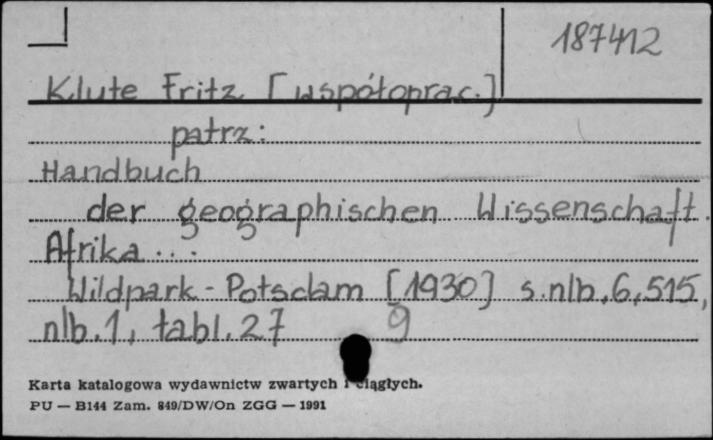 187412
Klute Fritz [współoprac.]
patrz:
Handbuch
der geographischen Wissenschaft.
Afrika...
Wildpark - Potsdam [1930] s.nlb.6,515,
nlb.1, tabl.27 9
Karta katalogowa wydawnictw zwartych i ciągłych.
PU — B144 Zam. 849/DW/On ZGG — 1991